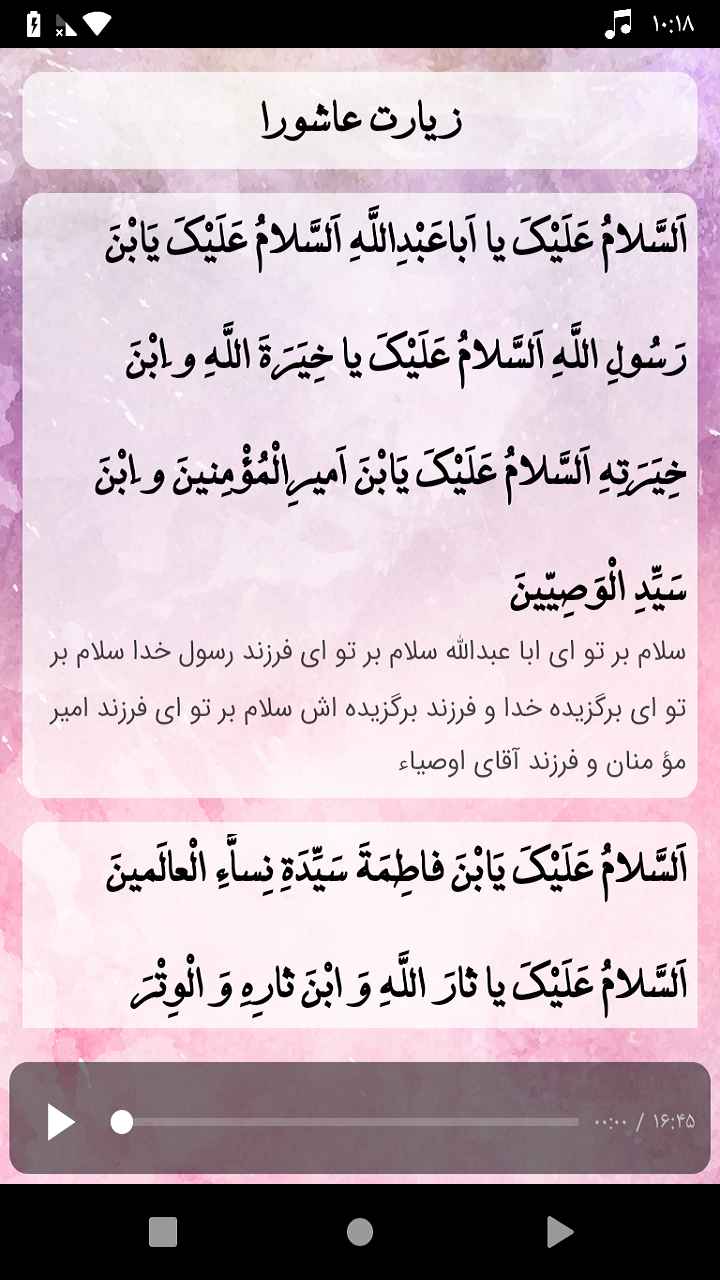 ۱۰:۱۸
زیارت عاشورا
اَلسَّلامُ عَلَیْکَ یا اَباعَبْدِاللَّهِ اَلسَّلامُ عَلَیْکَ یَابْنَ
رَسُولِ اللَّهِ اَلسَّلامُ عَلَیْکَ یا خِیَرَةَ اللَّهِ و ابْنَ
خِیَرَتِهِ اَلسَّلامُ عَلَیْکَ یَابْنَ اَمیرِالْمُؤْمِنینَ و ابْنَ
سَیِّدِ الْوَصِیّینَ
سلام بر تو ای ابا عبدالله سلام بر تو ای فرزند رسول خدا سلام بر
تو ای برگزیده خدا و فرزند برگزیده اش سلام بر تو ای فرزند امیر
مؤ منان و فرزند آقای اوصیاء
اَلسَّلامُ عَلَیْکَ یَابْنَ فاطِمَةَ سَیِّدَةِ نِساَّءِ الْعالَمینَ
اَلسَّلامُ عَلَیْکَ یا ثارَ اللَّهِ وَ ابْنَ ثارِهِ وَ الْوِتْرَ
۰۰:۰۰ / ۱۶:۴۵